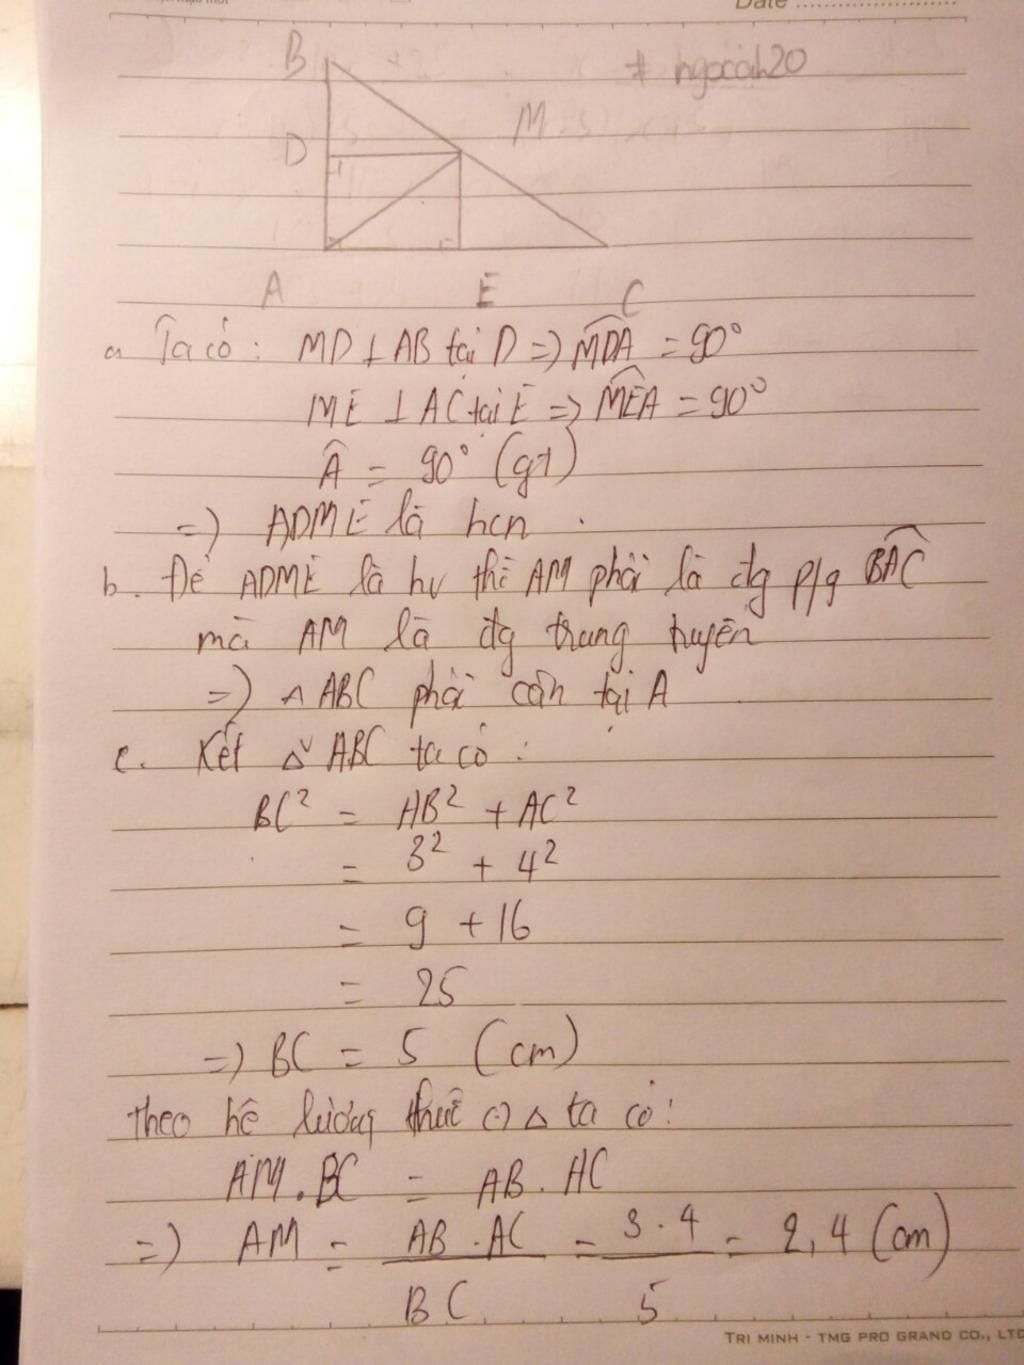 Date
B
# ngocanh20
M
D
A E C
a. Ta có: MD ⊥ AB tại D => MDA = 90°
ME ⊥ AC tại E => MEA = 90°
Â = 90° (gt)
=) ADME là hcn.
b. Để ADME là hv thì AM phải là đg p/g BAC
mà AM là đg trung tuyến
=) △ ABC phải cân tại A
c. Xét △v ABC ta có:
BC² = AB² + AC²
= 3² + 4²
= 9 + 16
= 25
=) BC = 5 (cm)
theo hệ lượng thức △ ta có:
AM.BC = AB.AC
=) AM = AB.AC / BC = 3.4 / 5 = 2,4 (cm)
TRI MINH - TMG PRO GRAND CO., LTD